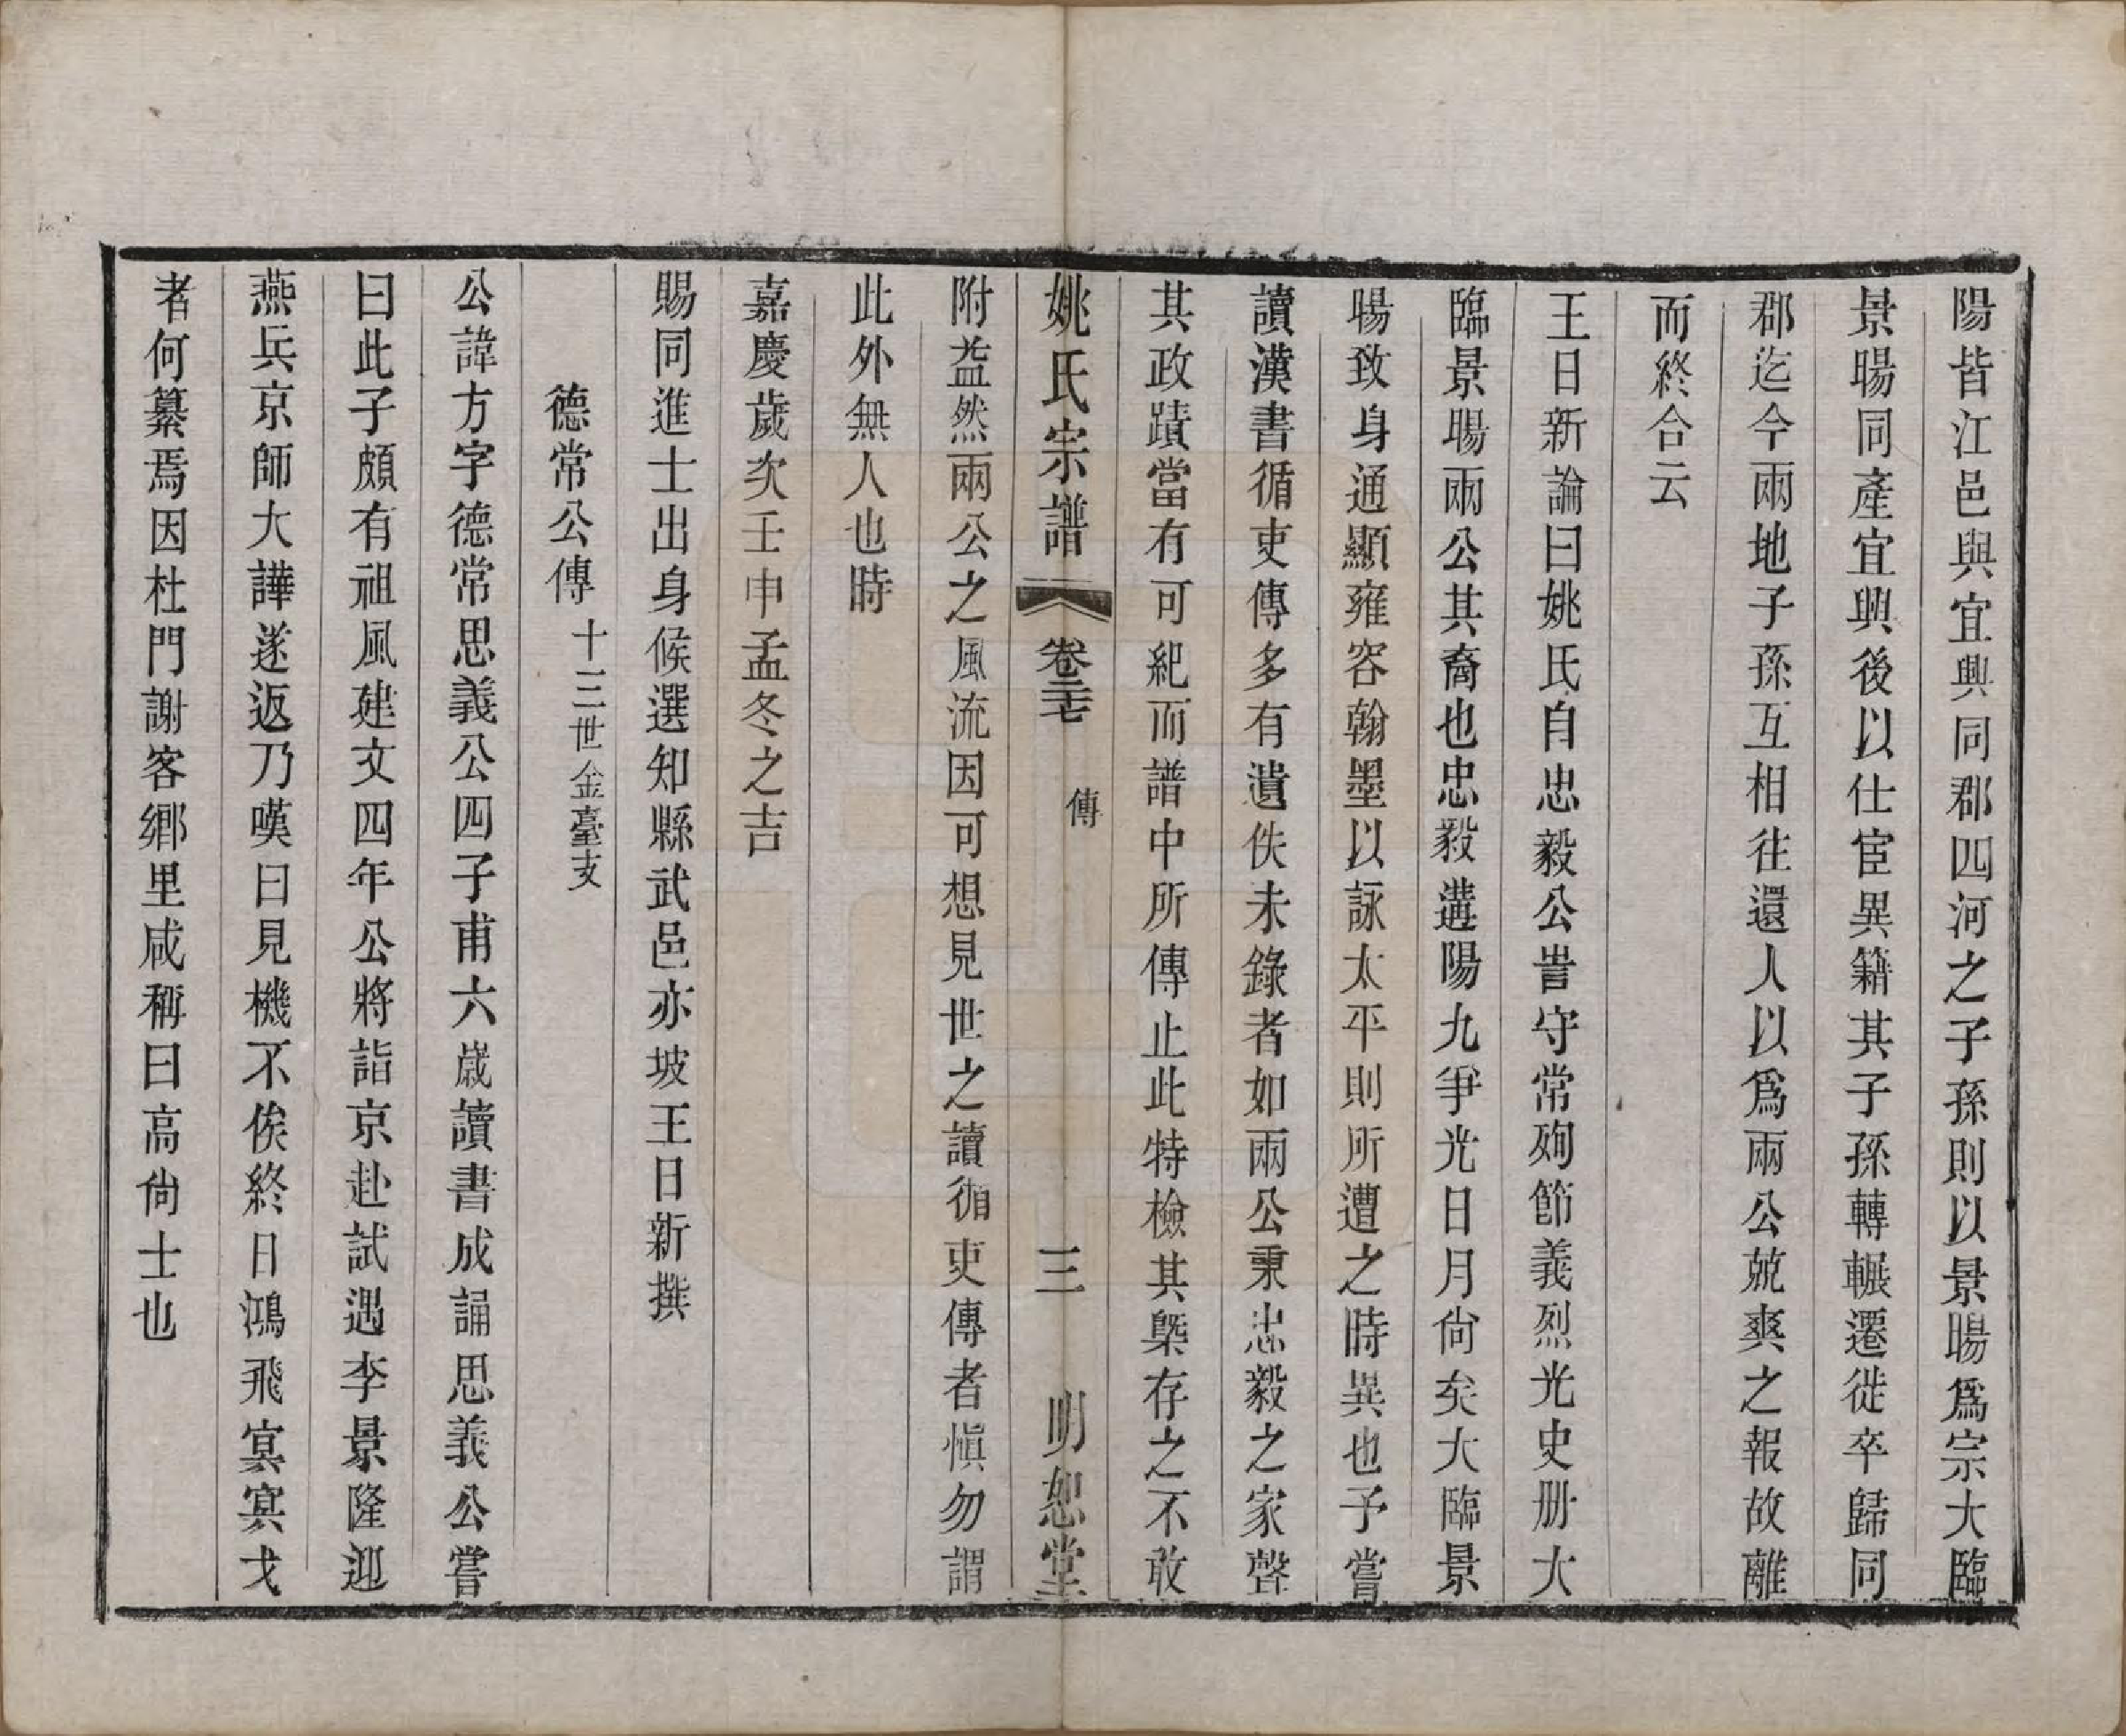 陽皆江邑與宜興同郡四河之子孫則以景暘爲宗大臨
景暘同產宜興後以仕宦異籍其子孫轉輾遷徙卒歸同
郡迄今兩地子孫互相往還人以爲兩公兢爽之報故離
而終合云
王日新論曰姚氏自忠毅公眥守常殉節義烈光史册大
臨景暘兩公其裔也忠毅遘陽九爭光日月尙矣大臨景
暘致身通顯雍容翰墨以詠太平則所遭之時異也予嘗
讀漢書循吏傳多有遺佚未錄者如兩公秉忠毅之家聲
其政蹟當有可紀而譜中所傳止此特檢其槩存之不敢
姚氏宗譜 卷三七 傳 三 明恕堂
附益然兩公之風流因可想見世之讀循吏傳者愼勿謂
此外無人也時
嘉慶歲次壬申孟冬之吉
賜同進士出身候選知縣武邑亦坡王日新撰
德常公傳 十三世金臺支
公諱方字德常思義公四子甫六歲讀書成誦思義公嘗
曰此子頗有祖風建文四年公將詣京赴試遇李景隆迎
燕兵京師大譁遂返乃嘆曰見機不俟終日鴻飛冥冥弋
者何纂焉因杜門謝客鄉里咸稱曰高尙士也